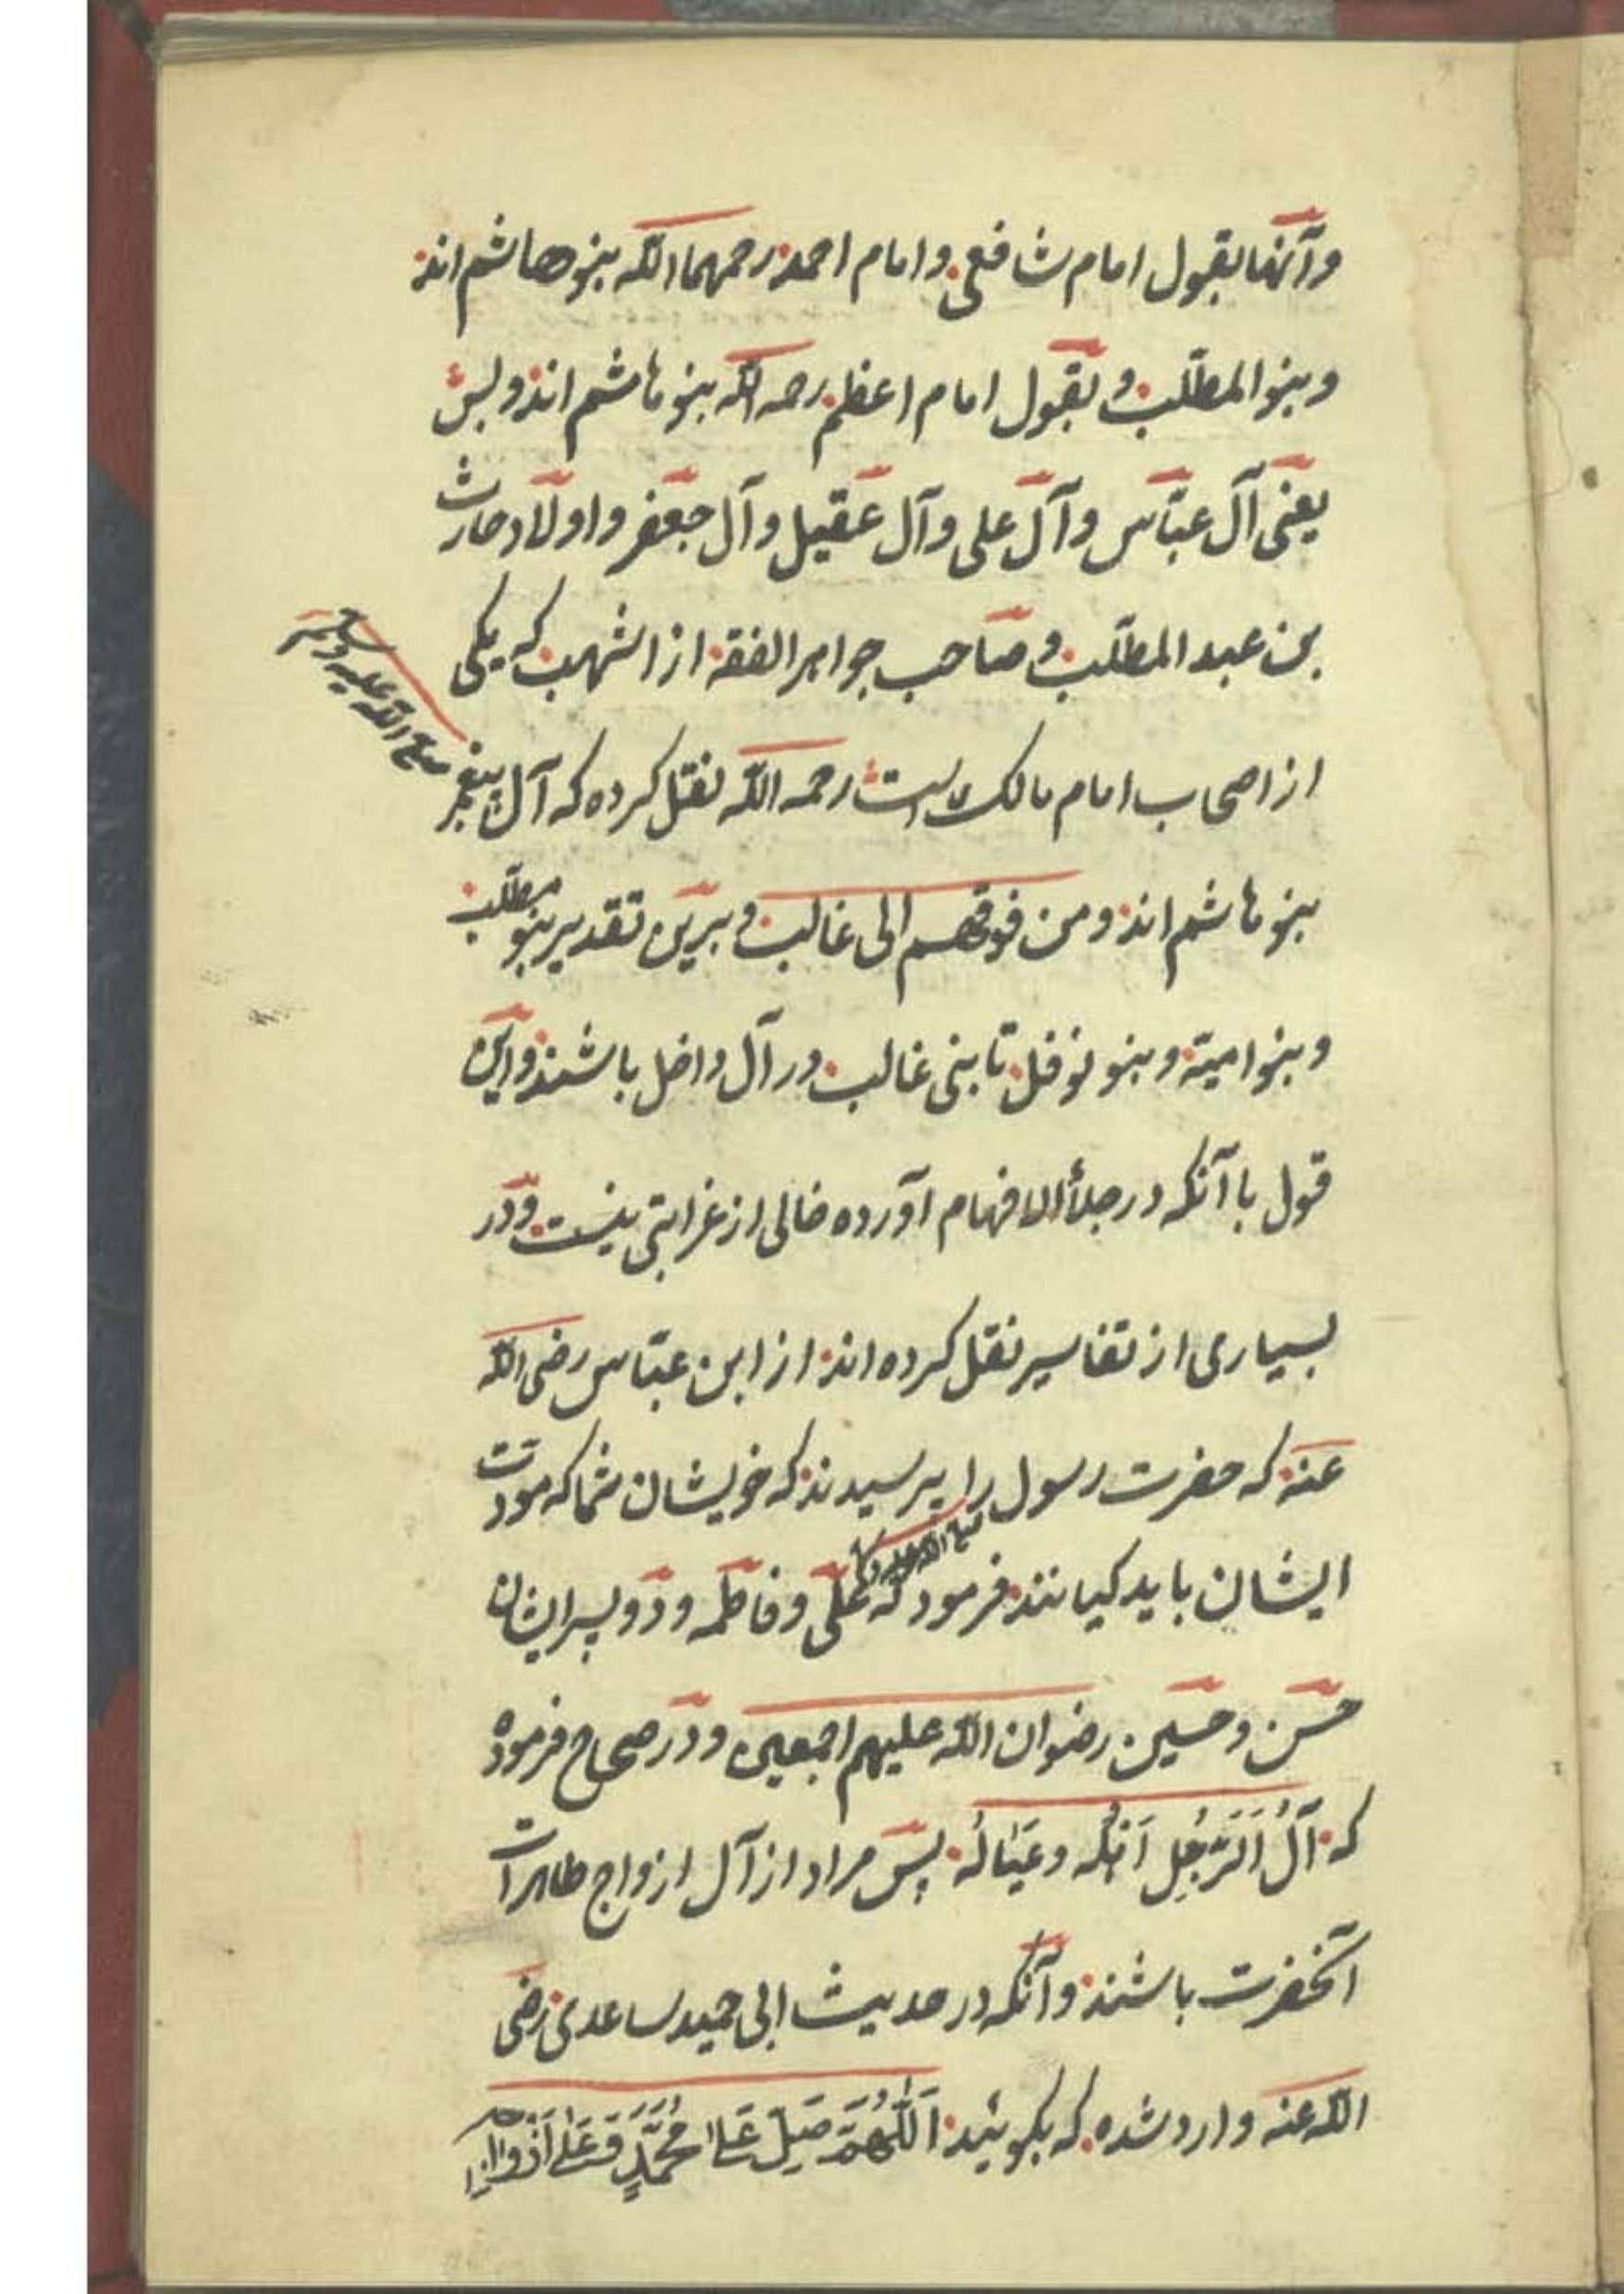 وآنها بقول امام شافعی و امام احمد رحمهما الله بنو هاشم اند
وبنو المطّلب و بقول امام اعظم رحمه الله بنو هاشم اند و بس
یعنی آل عبّاس وآل علی وآل عقیل وآل جعفر و اولاد حارث
بن عبد المطّلب و صاحب جواهر الفقه از اشهب که یکی
از اصحاب امام مالک است رحمه الله نقل کرده که آل پیغمبر
صلی الله علیه وسلم
بنو هاشم اند ومن فوقهم الی غالب و برین تقدیر بنو مطّلب
وبنو امیّة وبنو نوفل تا بنی غالب در آل داخل باشند و این
قول با آنکه در جلأ الافهام آورده خالی از غرابتی نیست و در
بسیاری از تفاسیر نقل کرده اند از ابن عبّاس رضی الله
عنه که حضرت رسول را پرسیدند که خویشان شما که مودت
صلی الله علیه
ایشان باید کیانند فرمود که علی و فاطمه و دو پسر ایشان
حسن و حسین رضوان الله علیهم اجمعین و در صحاح فرموده
که آلُ اَلرَّجُلِ اَهْلُه وعَیَالُه پس مراد از آل ازواج طاهرات
آنحضرت باشند و آنکه در حدیث ابی حمید ساعدی رضی
الله عنه وارد شده که بگوئید اَللّٰهُمَّ صَلِّ عَلیٰ مُحَمَّدٍ وَعَلیٰ اَزْوَاجِه